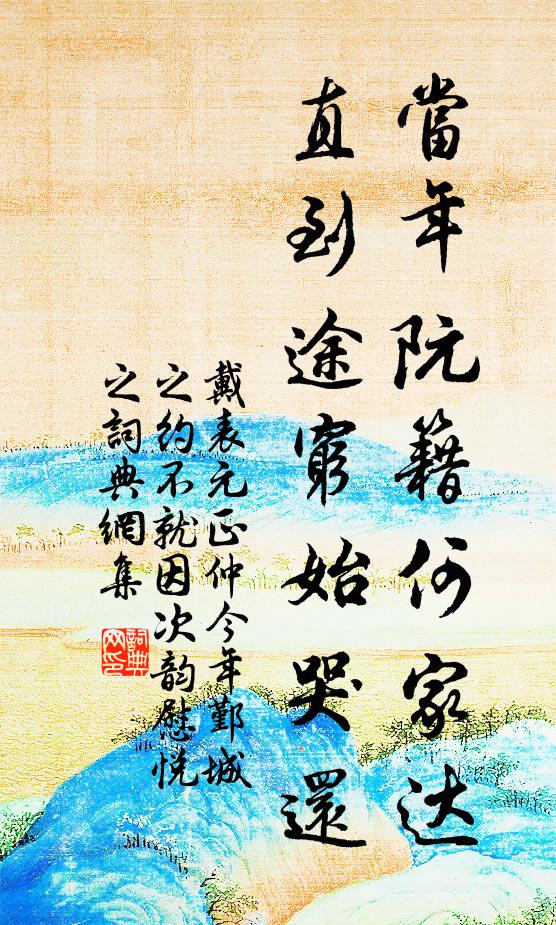 當年阮籍何家达
直到途窮始哭還
戴表元正仲今年鄞城
之約不就因次韵慰悦
之詞典網集
詞典网印